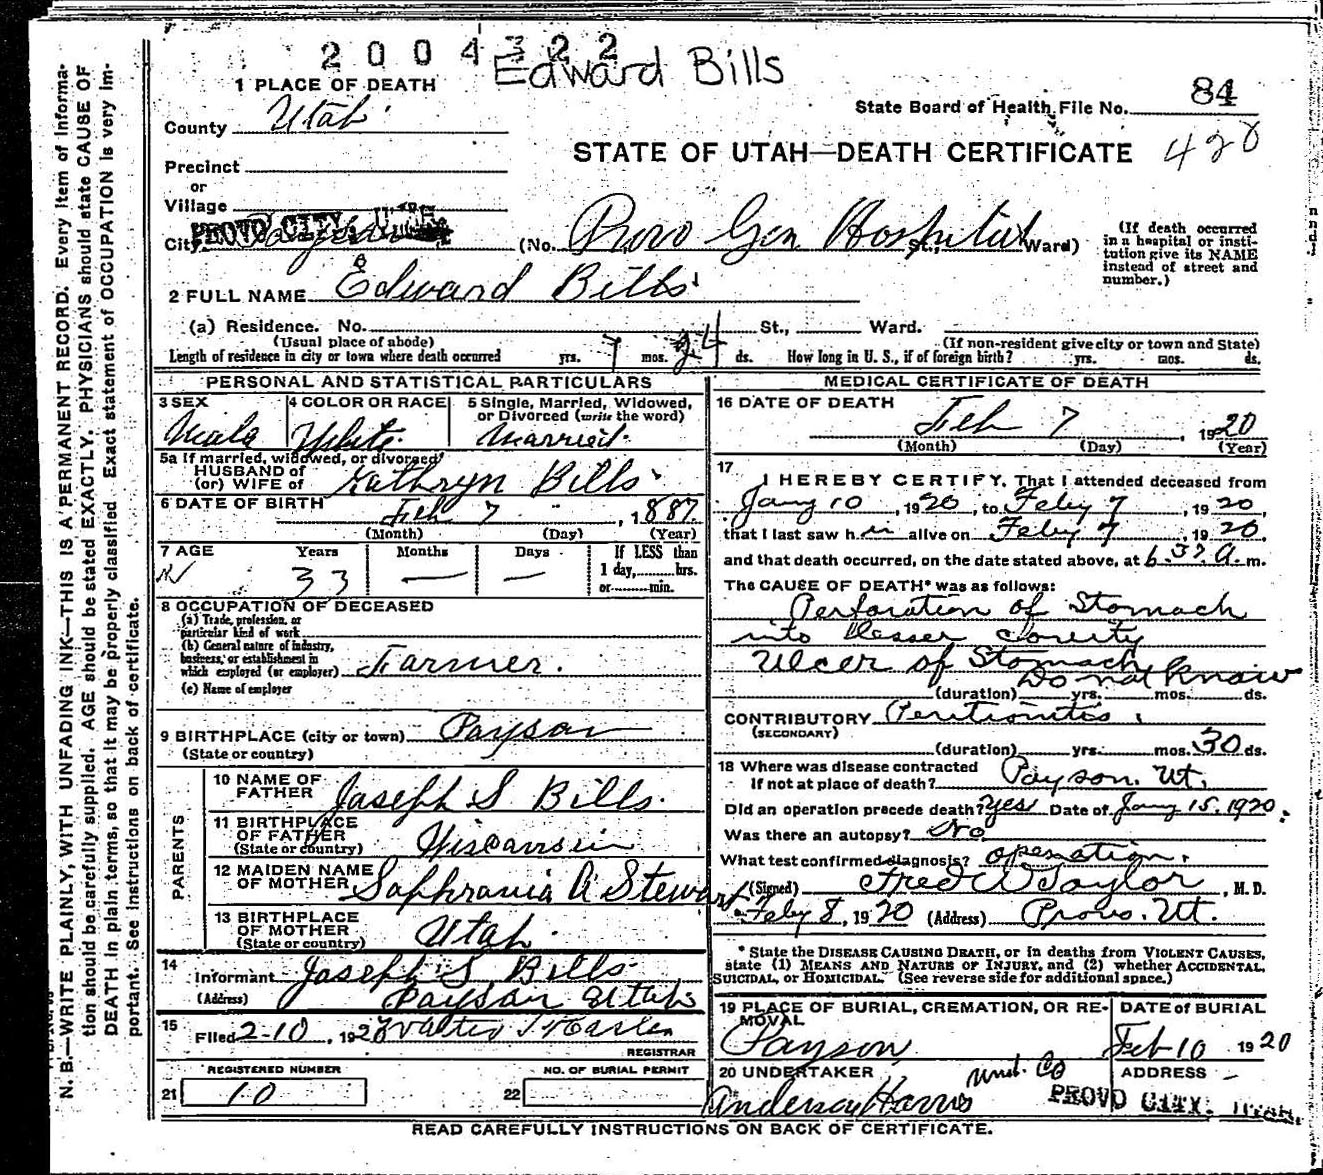 2004322
Edward Bills
1 PLACE OF DEATH
State Board of Health File No. 84
County Utah
STATE OF UTAH—DEATH CERTIFICATE
Precinct
or
Village
City PROVO CITY, UTAH (No. Provo Gen Hospital St., Ward)
(If death occurred in a hospital or institution give its NAME instead of street and number.)
2 FULL NAME Edward Bills
(a) Residence. No. St., Ward.
(Usual place of abode) (If non-resident give city or town and State)
Length of residence in city or town where death occurred yrs. mos. 24 ds. How long in U. S., if of foreign birth? yrs. mos. ds.
PERSONAL AND STATISTICAL PARTICULARS
3 SEX 4 COLOR OR RACE 5 Single, Married, Widowed, or Divorced (write the word)
Male White. Married.
5a If married, widowed, or divorced
HUSBAND of
(or) WIFE of Kathryn Bills
6 DATE OF BIRTH Feb 7, 1887.
(Month) (Day) (Year)
7 AGE Years Months Days If LESS than
1 day, hrs.
or min.
33 — —
8 OCCUPATION OF DECEASED
(a) Trade, profession, or
particular kind of work
(b) General nature of industry,
business, or establishment in
which employed (or employer) Farmer.
(c) Name of employer
9 BIRTHPLACE (city or town) Payson
(State or country)
PARENTS
10 NAME OF
FATHER Joseph S Bills.
11 BIRTHPLACE
OF FATHER
(State or country) Wisconsin
12 MAIDEN NAME
OF MOTHER Sophrania A Stewart
13 BIRTHPLACE
OF MOTHER
(State or country) Utah.
14
Informant Joseph S Bills
(Address) Payson Utah
15
Filed 2-10, 192
REGISTRAR
REGISTERED NUMBER NO. OF BURIAL PERMIT
21 10 22
MEDICAL CERTIFICATE OF DEATH
16 DATE OF DEATH
Feb 7, 1920
(Month) (Day) (Year)
17
I HEREBY CERTIFY, That I attended deceased from
Jany 10, 1920, to Feby 7, 1920,
that I last saw him alive on Feby 7, 1920.
and that death occurred, on the date stated above, at 6.37 a.m.
The CAUSE OF DEATH* was as follows:
Perforation of Stomach
into Lesser
Ulcer of Stomach
Do not know
(duration) yrs. mos. ds.
CONTRIBUTORY Peritionitis.
(SECONDARY)
(duration) yrs. mos. 30 ds.
18 Where was disease contracted
If not at place of death? Payson. Ut.
Did an operation precede death? Yes Date of Jany 15, 1920.
Was there an autopsy? No
What test confirmed diagnosis? operation.
(Signed) Fred W Taylor, M. D.
Feby 8, 1920 (Address) Provo. Ut.
* State the DISEASE CAUSING DEATH, or in deaths from VIOLENT CAUSES,
state (1) MEANS AND NATURE OF INJURY, and (2) whether ACCIDENTAL,
SUICIDAL, or HOMICIDAL. (See reverse side for additional space.)
19 PLACE OF BURIAL, CREMATION, OR RE-
MOVAL DATE of BURIAL
Payson Feb 10 1920
20 UNDERTAKER ADDRESS
Und. Co PROVO CITY, UTAH.
READ CAREFULLY INSTRUCTIONS ON BACK OF CERTIFICATE.
N. B.—WRITE PLAINLY, WITH UNFADING INK—THIS IS A PERMANENT RECORD. Every item of informa-
tion should be carefully supplied. AGE should be stated EXACTLY. PHYSICIANS should state CAUSE OF
DEATH in plain terms, so that it may be properly classified. Exact statement of OCCUPATION is very im-
portant. See instructions on back of certificate.